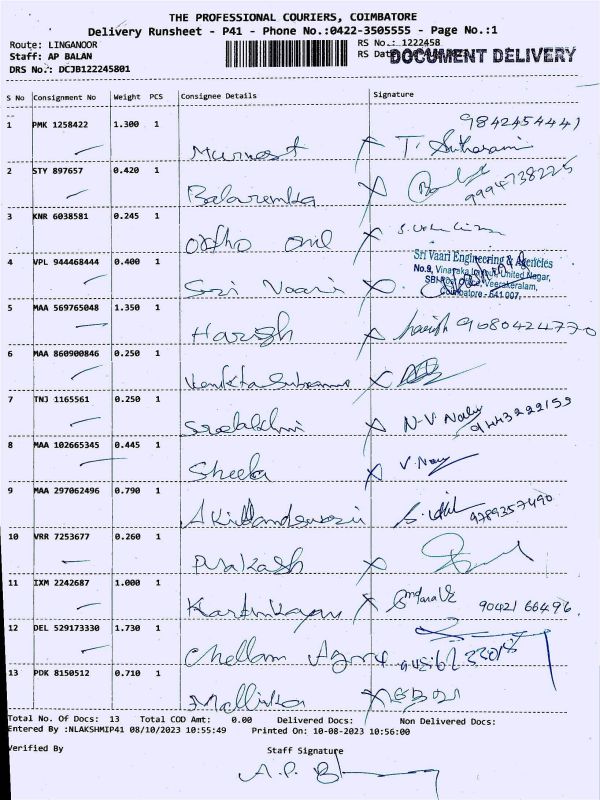 THE PROFESSIONAL COURIERS, COIMBATORE
Delivery Runsheet - P41 - Phone No.:0422-3505555 - Page No.:1
Route: LINGANOOR RS No.: 1222458
Staff: AP BALAN RS Dat DOCUMENT DELIVERY
DRS No.: DCJB122245801
S No Consignment No Weight PCS Consignee Details Signature
1 PMK 1258422 1.300 1 9842454441
T.
2 STY 897657 0.420 1
9994738225
3 KNR 6038581 0.245 1
Ortho one
Sri Vaari Engineering & Agencies
4 VPL 944468444 0.400 1 No.9, Vinayaka United Nagar,
Sri Vaari Veerakeralam,
Coimbatore - 641 007.
5 MAA 569765048 1.350 1
Harish harish 9680424770
6 MAA 860900846 0.250 1
7 TNJ 1165561 0.250 1
Sreelakshmi N-V 9443222159
8 MAA 102665345 0.445 1
Sheela V.
9 MAA 297062496 0.790 1
9789357490
10 VRR 7253677 0.260 1
Prakash
11 IXM 2242687 1.000 1
90421 66496
12 DEL 529173330 1.730 1
Chellam
13 PDK 8150512 0.710 1
Mallika
Total No. Of Docs: 13 Total COD Amt: 0.00 Delivered Docs: Non Delivered Docs:
Entered By :NLAKSHMIP41 08/10/2023 10:55:49 Printed On: 10-08-2023 10:56:00
Verified By Staff Signature
A.P. B